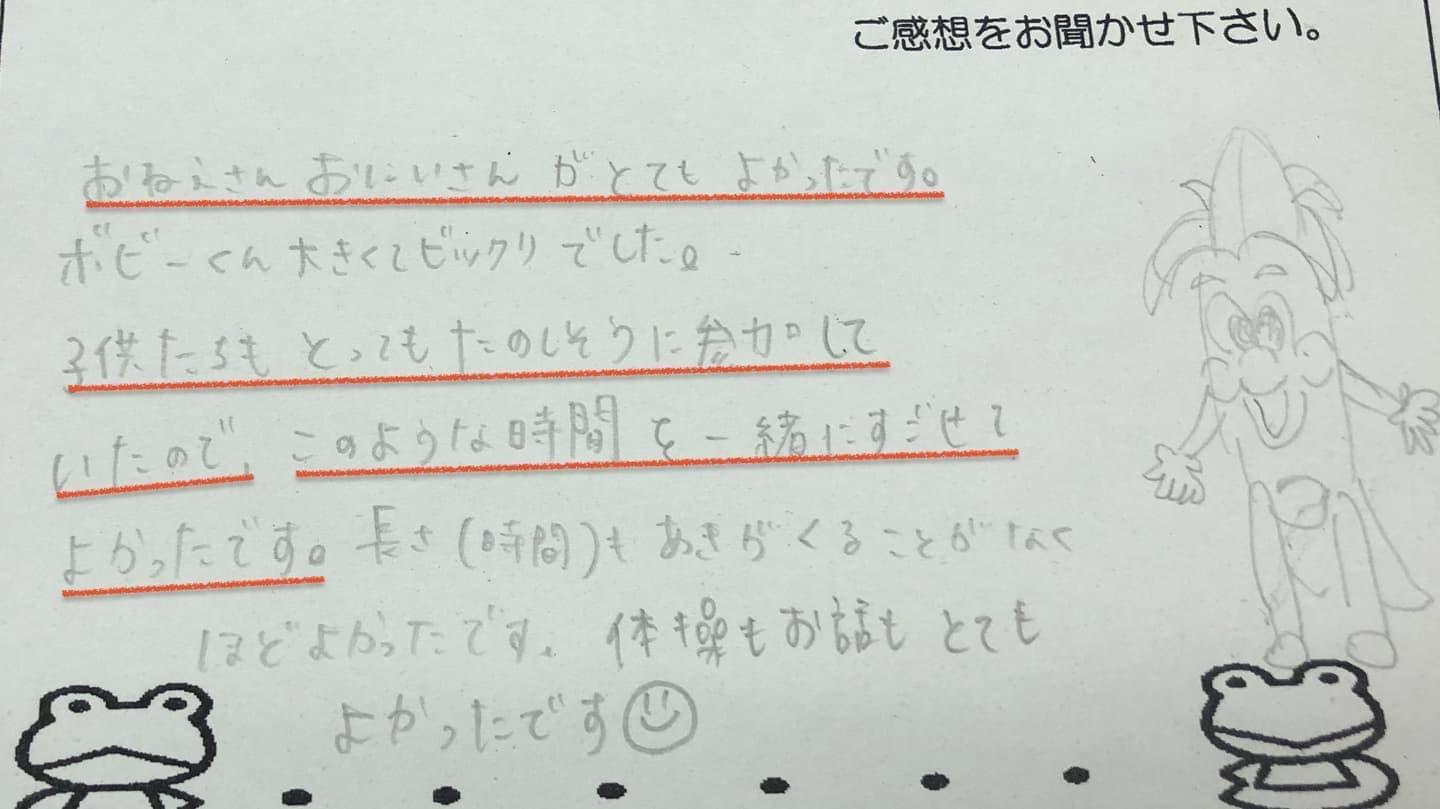 ご感想をお聞かせ下さい。
おねえさん おにいさん がとても よかったです。
ボビーくん大きくてビックリでした。
子供たちも とってもたのしそうに参加して
いたので、このような時間を一緒にすごせて
よかったです。長さ(時間)もあきがくることがなく
ほどよかったです。体操もお話も とても
よかったです